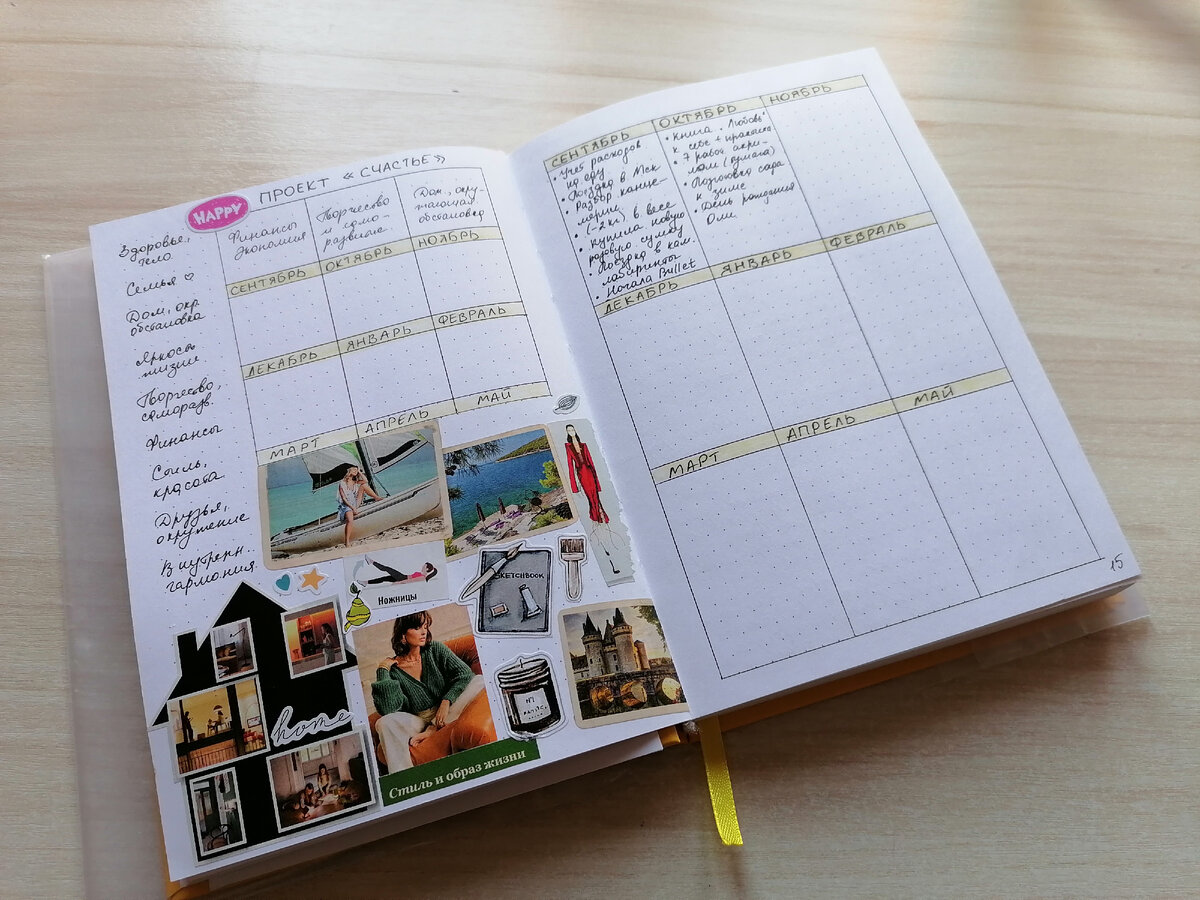 HAPPY
ПРОЕКТ «СЧАСТЬЕ»
Здоровье,
тело
Семья ♡
Дом, окр.
обстановка
Яркость
жизни
Творчество,
саморазв.
Финансы
Стиль,
красота
Друзья,
окружение
Внутрен.
гармония.
Финансы
Экономия
Творчество
и само-
развитие.
Дом, окру-
жающая
обстановка
СЕНТЯБРЬ
ОКТЯБРЬ
НОЯБРЬ
ДЕКАБРЬ
ЯНВАРЬ
ФЕВРАЛЬ
МАРТ
АПРЕЛЬ
МАЙ
Ножницы
SKETCHBOOK
home
Nº1
Стиль и образ жизни
СЕНТЯБРЬ
• Учёт расходов
на еду
• Поездка в Мск
• Разбор канце-
лярии
• (-2 кг) в весе
• Купила новую
розовую сумку
• Поездка в кам.
лабиринты
• Начала Bullet
ОКТЯБРЬ
• Книга "Любовь
к себе" + практика
• 7 работ акри-
лом (бумага)
• Подготовка сада
к зиме
• День рождения
Оли
НОЯБРЬ
ДЕКАБРЬ
ЯНВАРЬ
ФЕВРАЛЬ
МАРТ
АПРЕЛЬ
МАЙ
15